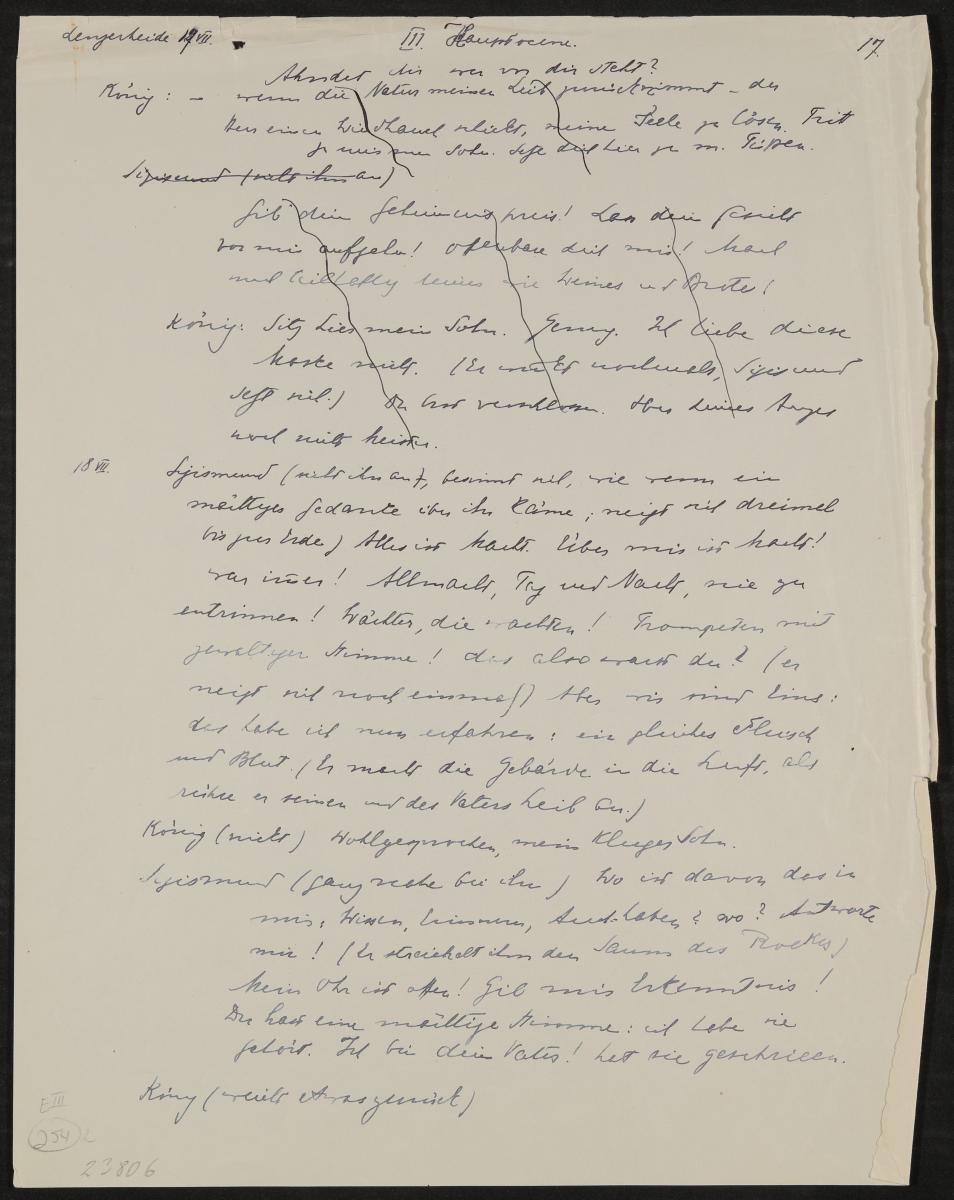 Lenzerheide 17 VII. III. Hauptscene. 17.
Ahndet dir wer vor dir steht?
König: – wenn die Natur meinen Leib zurücknimmt – der
Herr einen Windhauch schickt, meine Seele zu lösen. Tritt
zu mir mein Sohn. Setze dich hier zu m. Füßen.
Sigismund (sieht ihn an)
Gib dein Geheimnis preis! Lass dein Gesicht
vor mir aufgehn! Offenbare dich mir!
und Weines und Brotes!
König: Sitz hier mein Sohn. Genug. Ich liebe diese
Maske nicht. (Er winkt nochmals, Sigismund
setzt sich.) Du bist verschlossen.
noch nicht
18 VII. Sigismund (sieht ihn an, besinnt sich, wie wenn ein
mächtiger Gedanke über ihn käme; neigt sich dreimal
bis zur Erde) Alles ist Macht. Über mir ist Macht!
war immer! Allmacht, Tag und Nacht, nie zu
entrinnen! Wächter, die wachten! Trompeten mit
gewaltiger Stimme! das also warst du? (er
neigt sich noch einmal) Aber wir sind Eins:
das habe ich nun erfahren: ein gleiches Fleisch
und Blut. (Er macht die Gebärde in die Luft, als
rühre er seinen und des Vaters Leib an.)
König (nickt) Wohlgesprochen, mein kluger Sohn.
Sigismund (ganz nahe bei ihm) Wo ist davon das in
mir, Wissen, Erinnern, wo? Antworte
mir! (Er streichelt ihm den Saum des Rockes)
Mein Ohr ist offen! Gib mir Erkenntnis!
Du hast eine mächtige Stimme: ich habe sie
gehört. Ich bin dein Vater! hat sie geschrieen.
König (weicht etwas zurück)
E III
254
23806